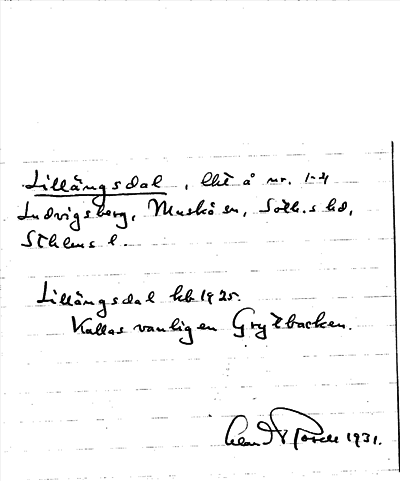 Lillängsdal, lht å nr. 1-4
Ludvigsberg, Muskö sn, Soth.s hd,
Sthlms l.
Lillängsdal hkb 1925.
Kallas vanligen Grytbacken.
1931.